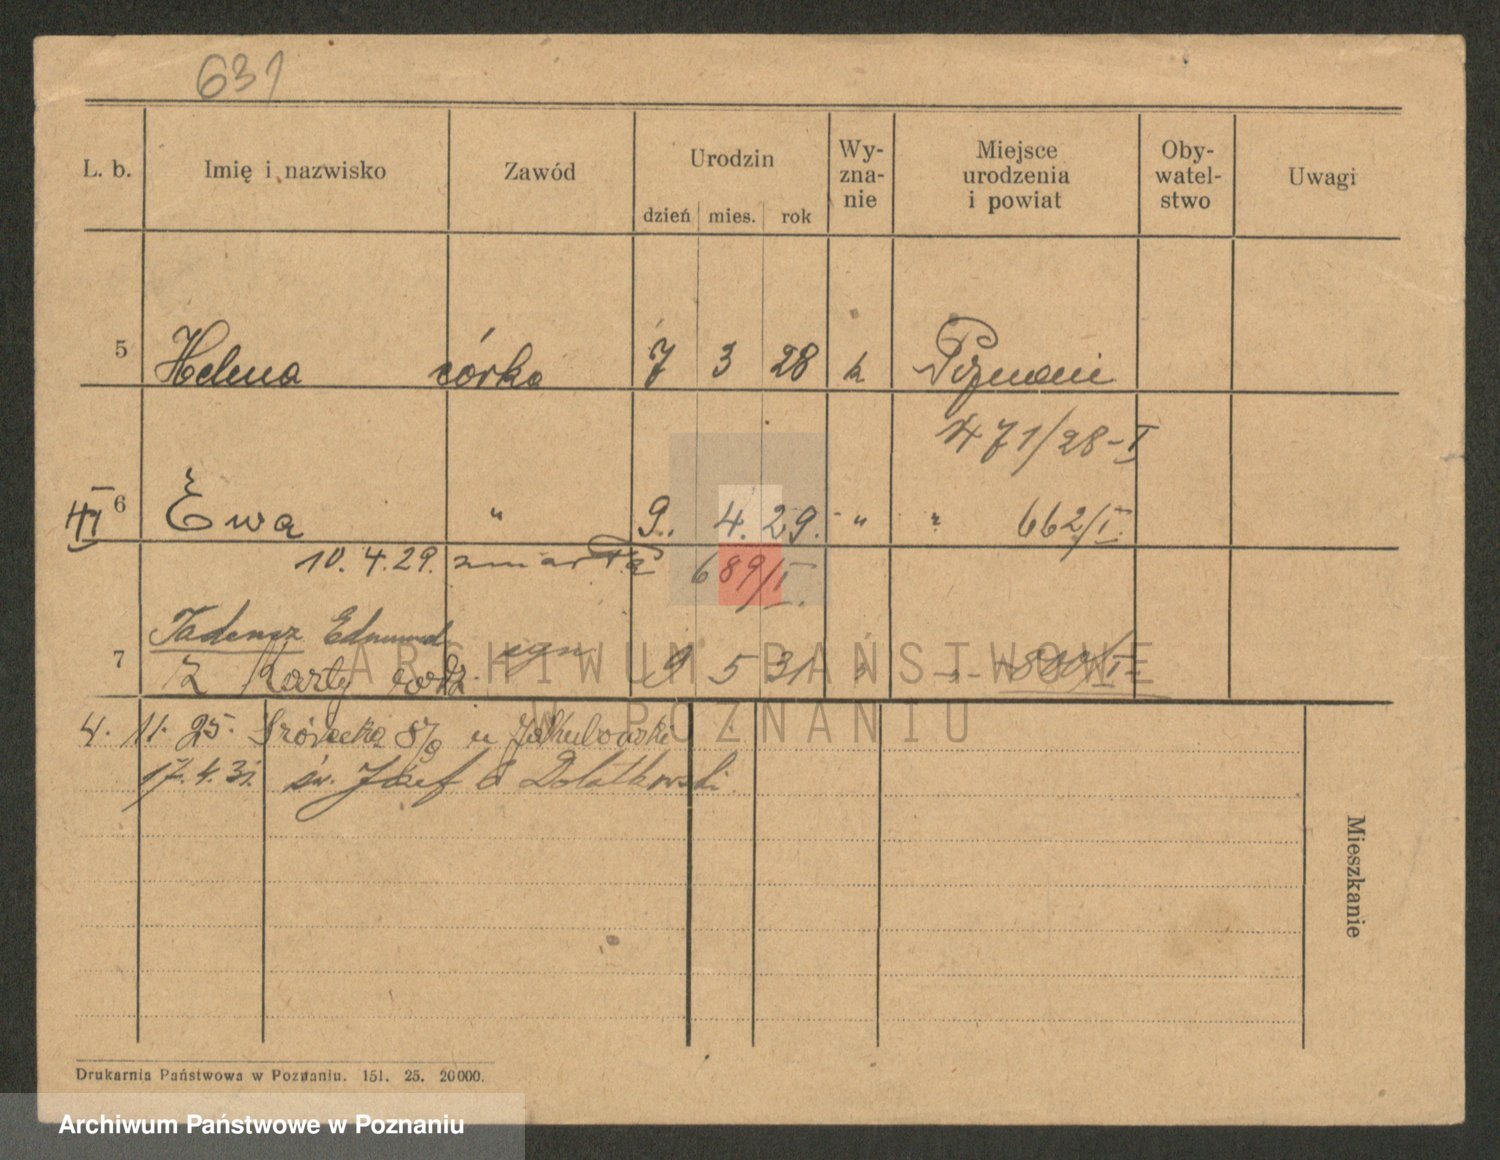 631
L. b. Imię i nazwisko Zawód Urodzin Wy-zna-nie Miejsce urodzenia i powiat Oby-watel-stwo Uwagi
dzień mies. rok
5 Helena córka 7 3 28 k Poznań
471/28-I
III 6 Ewa " 9. 4. 29. " " 662/I
10. 4. 29. zmarła 689/I.
Tadeusz Edmund
7 z karty rodz. syn 9 5 31 " 800/I
4. 11. 25. Śródecka 8/9 u Jakubowski
17. 4. 31. św. Józef 6 Dolatkowski
Mieszkanie
Drukarnia Państwowa w Poznaniu. 151. 25. 20000.
ARCHIWUM PAŃSTWOWE
W POZNANIU
Archiwum Państwowe w Poznaniu